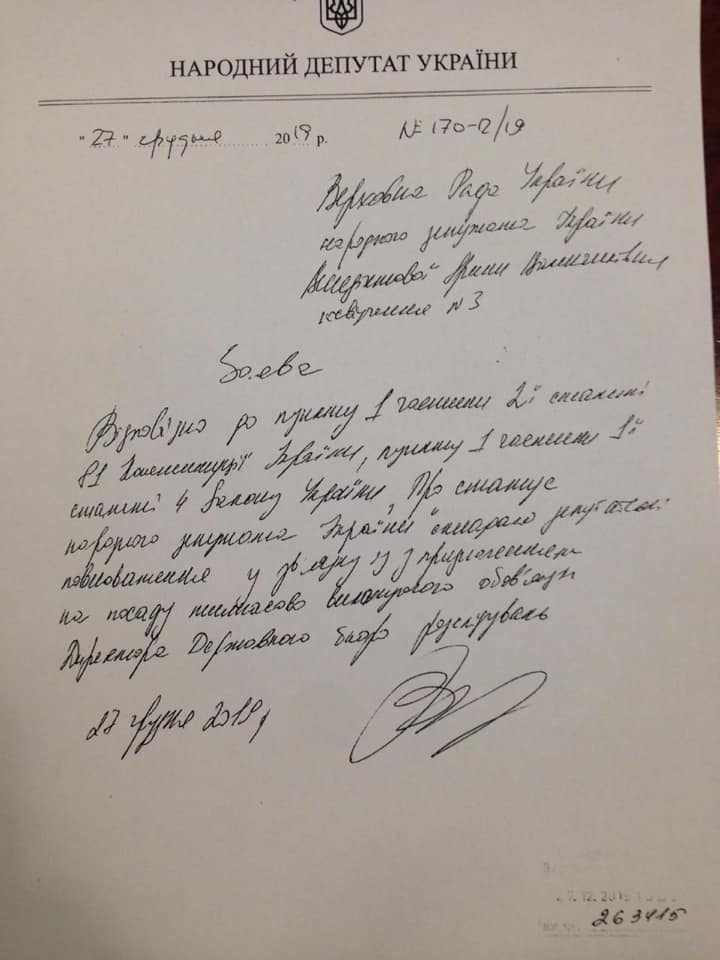 НАРОДНИЙ ДЕПУТАТ УКРАЇНИ
"27" грудня 2019 р. № 170-12/19
Верховна Рада України
народного депутата України
Венедіктової Ірини Валентинівни
посвідчення N3
Заява
Відповідно до пункту 1 частини 2ї статті
81 Конституції України, пункту 1 частини 1ї
статті 4 Закону України "Про статус
народного депутата України" складаю депутатські
повноваження у зв'язку із призначенням
на посаду тимчасово виконуючого обов'язки
Директора Державного бюро розслідувань
27 грудня 2019 р
27.12.2019
263415